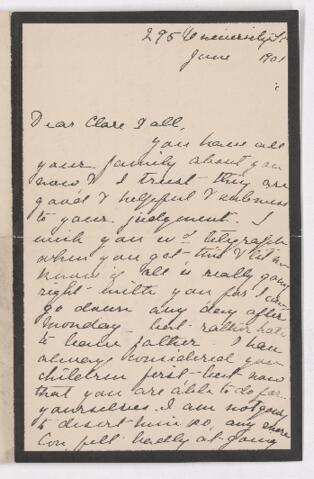 295 University St
June 1901
Dear Clare & all,
you have all
your family about you
now & I trust they are
good & helpful &
to your judgment. I
wish you wd telegraph
when you get this & let me
know if all is really going
right with you for I can
go down any day after
Monday but rather hate
to leave father. I have
always considered you
children first but now
that you are able to do for
yourselves. I am not going
to desert him so, any more
Con. felt badly at going